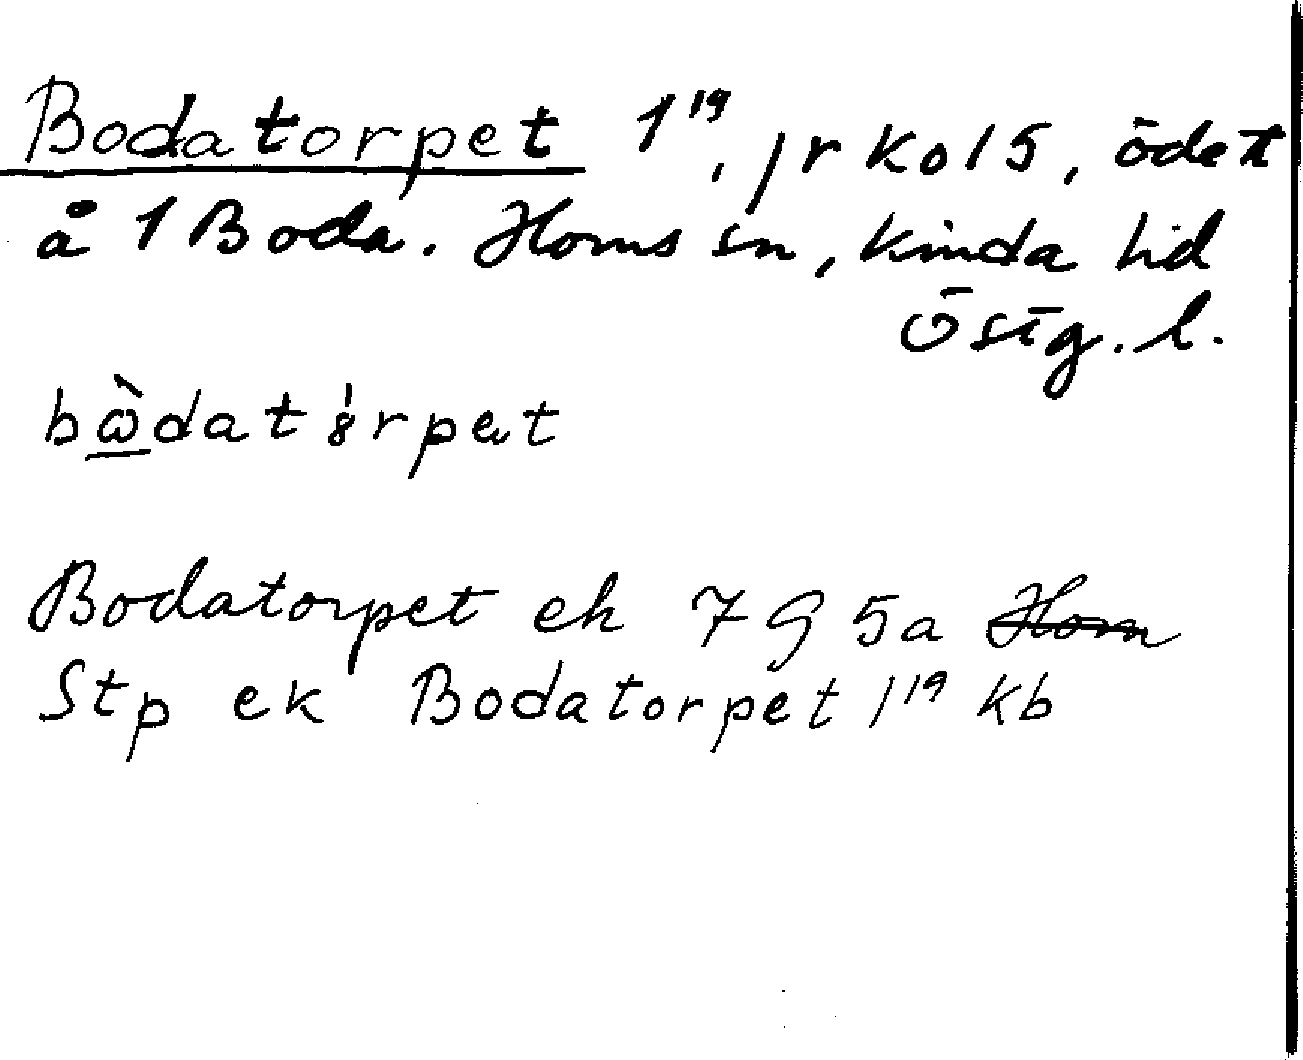 Bodatorpet 1¹⁹, jr kol 5, ödet
å 1 Boda. Horns sn, Kinda hd
Östg. l.
Bodatorpet ek 7G 5a Horn
Stp ek Bodatorpet 1¹⁹ kb